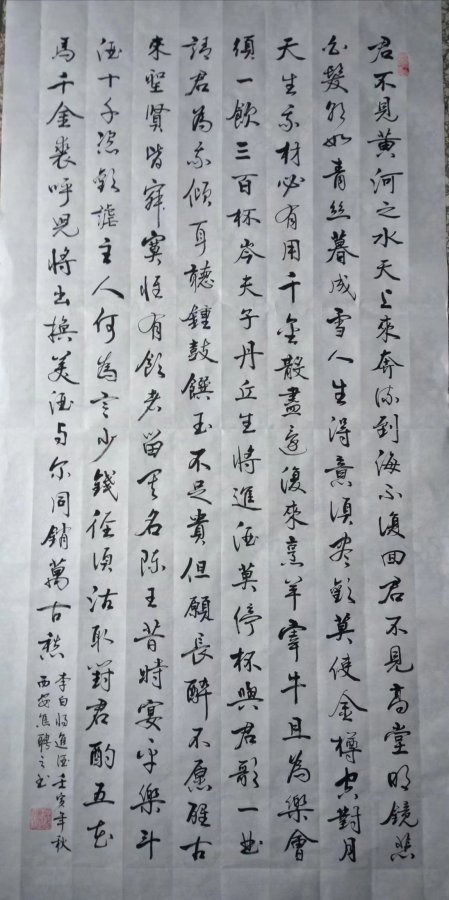 君不見黃河之水天上來奔流到海不復回君不見高堂明鏡悲
白髮朝如青絲暮成雪人生得意須盡歡莫使金樽空對月
天生我材必有用千金散盡還復來烹羊宰牛且為樂會
須一飲三百杯岑夫子丹丘生將進酒莫停杯與君歌一曲
請君為我傾耳聽鐘鼓饌玉不足貴但願長醉不愿醒古
來聖賢皆寂寞惟有飲者留其名陳王昔時宴平樂斗
酒十千恣歡謔主人何為言少錢徑須沽取對君酌五花
馬千金裘呼兒將出換美酒与尔同銷萬古愁
李白將進酒壬寅年秋
西安焦聘之书